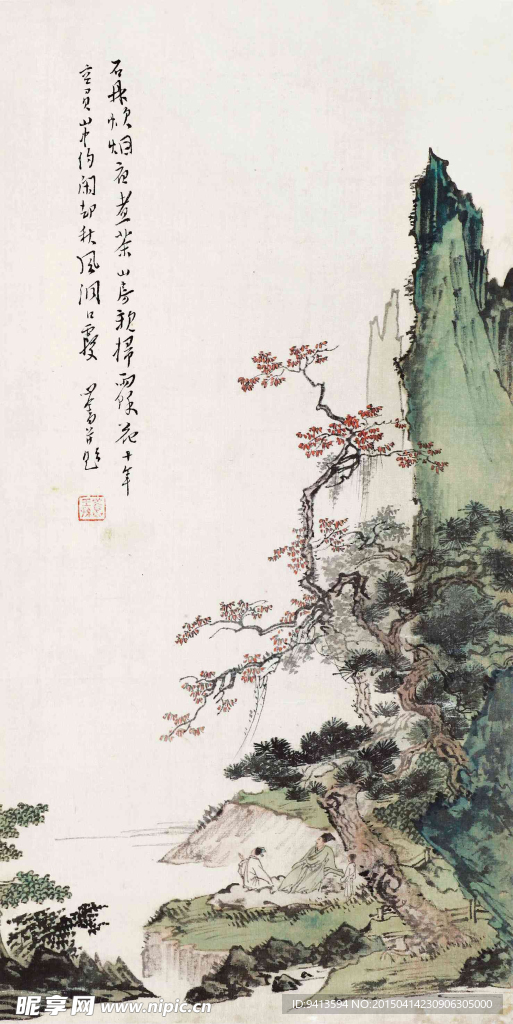 石鼎吹烟夜煮茶山房親掃雨餘花十年
空負山中約閒却秋風洞口霞 心畬并題
昵享网 www.nipic.cn
ID:9413594 NO:20150414230906305000